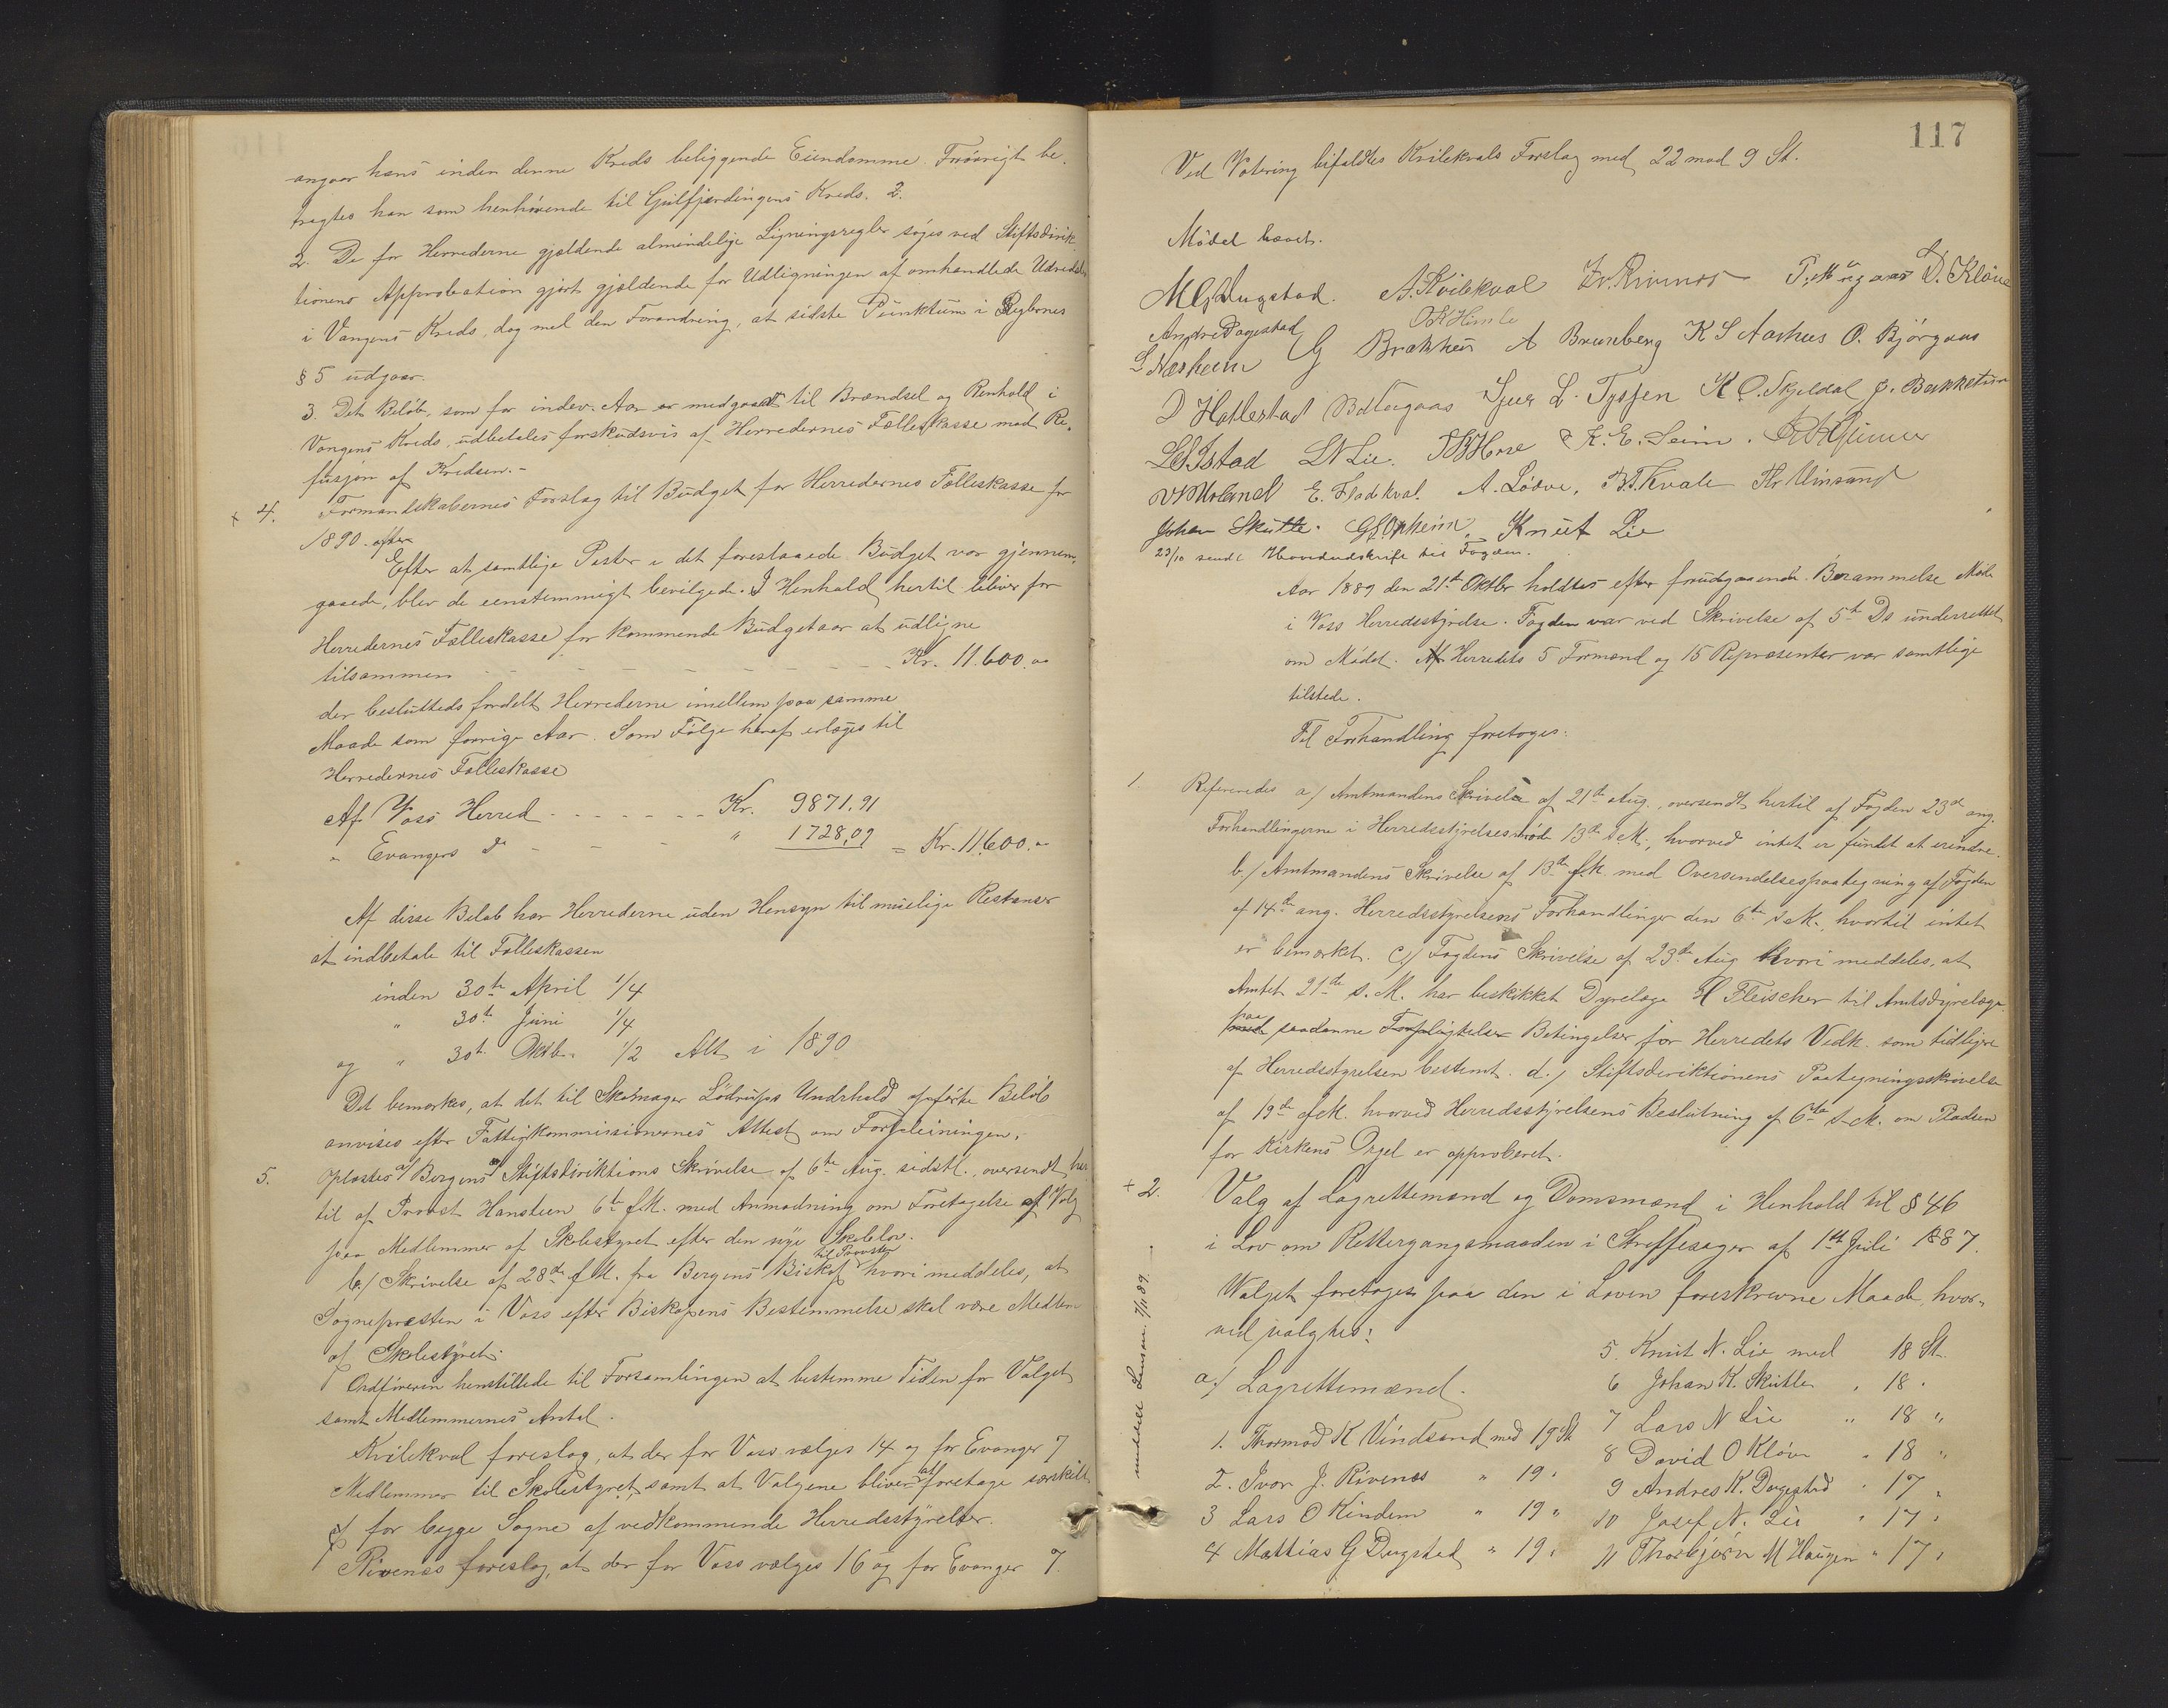 angaar hans inden denne Kreds beliggende Eiendomme. Forøvrigt be-
tragtes han som henhørende til Gjilfjerdingens Kreds. 2.
2. De for Herrederne gjældende almindelige Ligningsregler søges ved Stiftsdirek-
tionens Approbation gjort gjældende for Udligningen af omhandlede Udredsler
i Vangens Kreds, dog med den Forandring, at sidste Punktum i Reglernes
§ 5 udgaar.
3. Det Beløb, som for indev. Aar er medgaaet til Brændsel og Renhold i
Vangens Kreds, udbetales forskudsvis af Herredernes Fælleskasse mod Re-
fusjon af Kredsen.-
+ 4. Formandskabernes Forslag til Budget for Herredernes Fælleskasse for
1890.
Efter at samtlige Poster i det foreslaaede Budget var gjennem-
gaaede, blev de eenstemmigt bevilgede. I Henhold hertil bliver for
Herredernes Fælleskasse for kommende Budgetaar at udligne
tilsammen - - - - - - - Kr. 11.600.00
der besluttedes fordelt Herrederne imellem paa samme
Maade som forrige Aar. Som Følge heraf erlægges til
Herredernes Fælleskasse
Af Voss Herred - - - - - - Kr. 9871,91
" Evangers Do - - - " 1728,09 = Kr. 11,600.00
Af disse Beløb har Herrederne uden Hensyn til muelige Restanser
at indbetale til Fælleskassen
inden 30te April 1/4
" 30te Juni 1/4
og " 30te Oktb. 1/2 Alt i 1890
Det bemærkes, at det til Skomager Lødrups Underhold opførte Beløb
anvises efter Fattigkommissionernes Attest om Forpleiningen.
5. Oplæstes a/ Bergens Stiftsdirektions Skrivelse af 6te Aug. sidstl., oversendt her-
til af Provst Hansteen 6te f.M. med Anmodning om Foretagelse af Valg
paa Medlemmer af Skolestyret efter den nye Skolelov.
b/ Skrivelse af 28de f.M. fra Bergens Biskop til Provsten hvori meddeles, at
Sognepræsten i Voss efter Biskopens Bestemmelse skal være Medlem
af Skolestyret.
Ordføreren henstillede til Forsamlingen at bestemme Tiden for Valget
samt Medlemmernes Antal.
Kvilekval foreslog, at der for Voss vælges 14 og for Evanger 7
Medlemmer til Skolestyret, samt at Valgene bliver at foretage særskilt
for begge Sogne af vedkommende Herredsstyrelser.
Rivenes foreslog, at der for Voss vælges 16 og for Evanger 7.
117
Ved Votering bifaldtes Kvilekvals Forslag med 22 mod 9 St.
Mødet hævet.
M G Dugstad. A. Kvilekval Iv. Rivenes D. Kløve
Andre Dagestad O K Himle
L Næsheim G Brækhus A Brunborg K S Aarhus O. Bjørgaas
D Hallestad Sjur L. Tyssen K O. Skjeldal J. Bakketun
L N Lie. K. E. Seim.
E. Fladkval. A. Lødve. B. T. Kvale Th. Vinsand
Johan Skutle. G L Opheim. Knut Lie
23/10 sendt Hovedudskrift til Fogden.
Aar 1889 den 21de Oktbr holdtes efter forudgaaende Berammelse Møde
i Voss Herredsstyrelse. Fogden var ved Skrivelse af 5te Ds underrettet
om Mødet. Af Herredets 5 Formænd og 15 Repræsenter var samtlige
tilstede.
Til Forhandling foretoges:
1. Refereredes a/ Amtmandens Skrivelse af 21de Aug., oversendt hertil af Fogden 23de ang.
Forhandlingerne i Herredsstyrelsesmøde 13de s.M., hvorved intet er fundet at erindre.
b./ Amtmandens Skrivelse af 13de f.M. med Oversendelsespaategning af Fogden
af 14de ang. Herredsstyrelsens Forhandlinger den 6te s.M., hvortil intet
er bemærket. c./ Fogdens Skrivelse af 23de Aug. hvori meddeles, at
Amtet 21de s.M. har beskikket Dyrlæge H Fleischer til Amtsdyrlæge
paa saadanne Forpligtelser Betingelser for Herredets Vedk. som tidligere
af Herredsstyrelsen bestemt. d./ Stiftsdirektionens Paategningsskrivelse
af 19de f.M. hvorved Herredsstyrelsens Beslutning af 6te s.M. om Pladsen
for Kirkens Orgel er approberet.
+ 2. Valg af Lagrettemænd og Domsmænd i Henhold til § 46
i Lov om Rettergangsmaaden i Straffesager af 1ste Juli 1887.
Valget foretoges paa den i Loven foreskrevne Maade, hvor-
ved valgtes:
meddelt Lensm. 7/11 89.
a/ Lagrettemænd.
1. Thormod K Vindsand med 19 St.
2. Ivar J. Rivenes " 19 "
3 Lars O Kindem " 19 "
4 Mattias G Dugstad " 19 "
5. Knut N. Lie med 18 St.
6 Johan K. Skutle " 18 "
7 Lars N Lie " 18 "
8 David O Kløve " 18 "
9 Andres K. Dagestad " 17 "
10 Josef N. Lie " 17 "
11 Thorbjørn M Haugen " 17 "